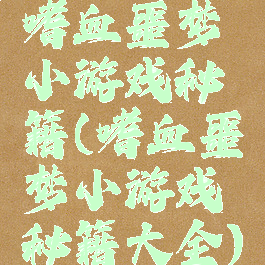 嗜血噩梦
小游戏秘
籍(嗜血噩
梦小游戏
秘籍大全)